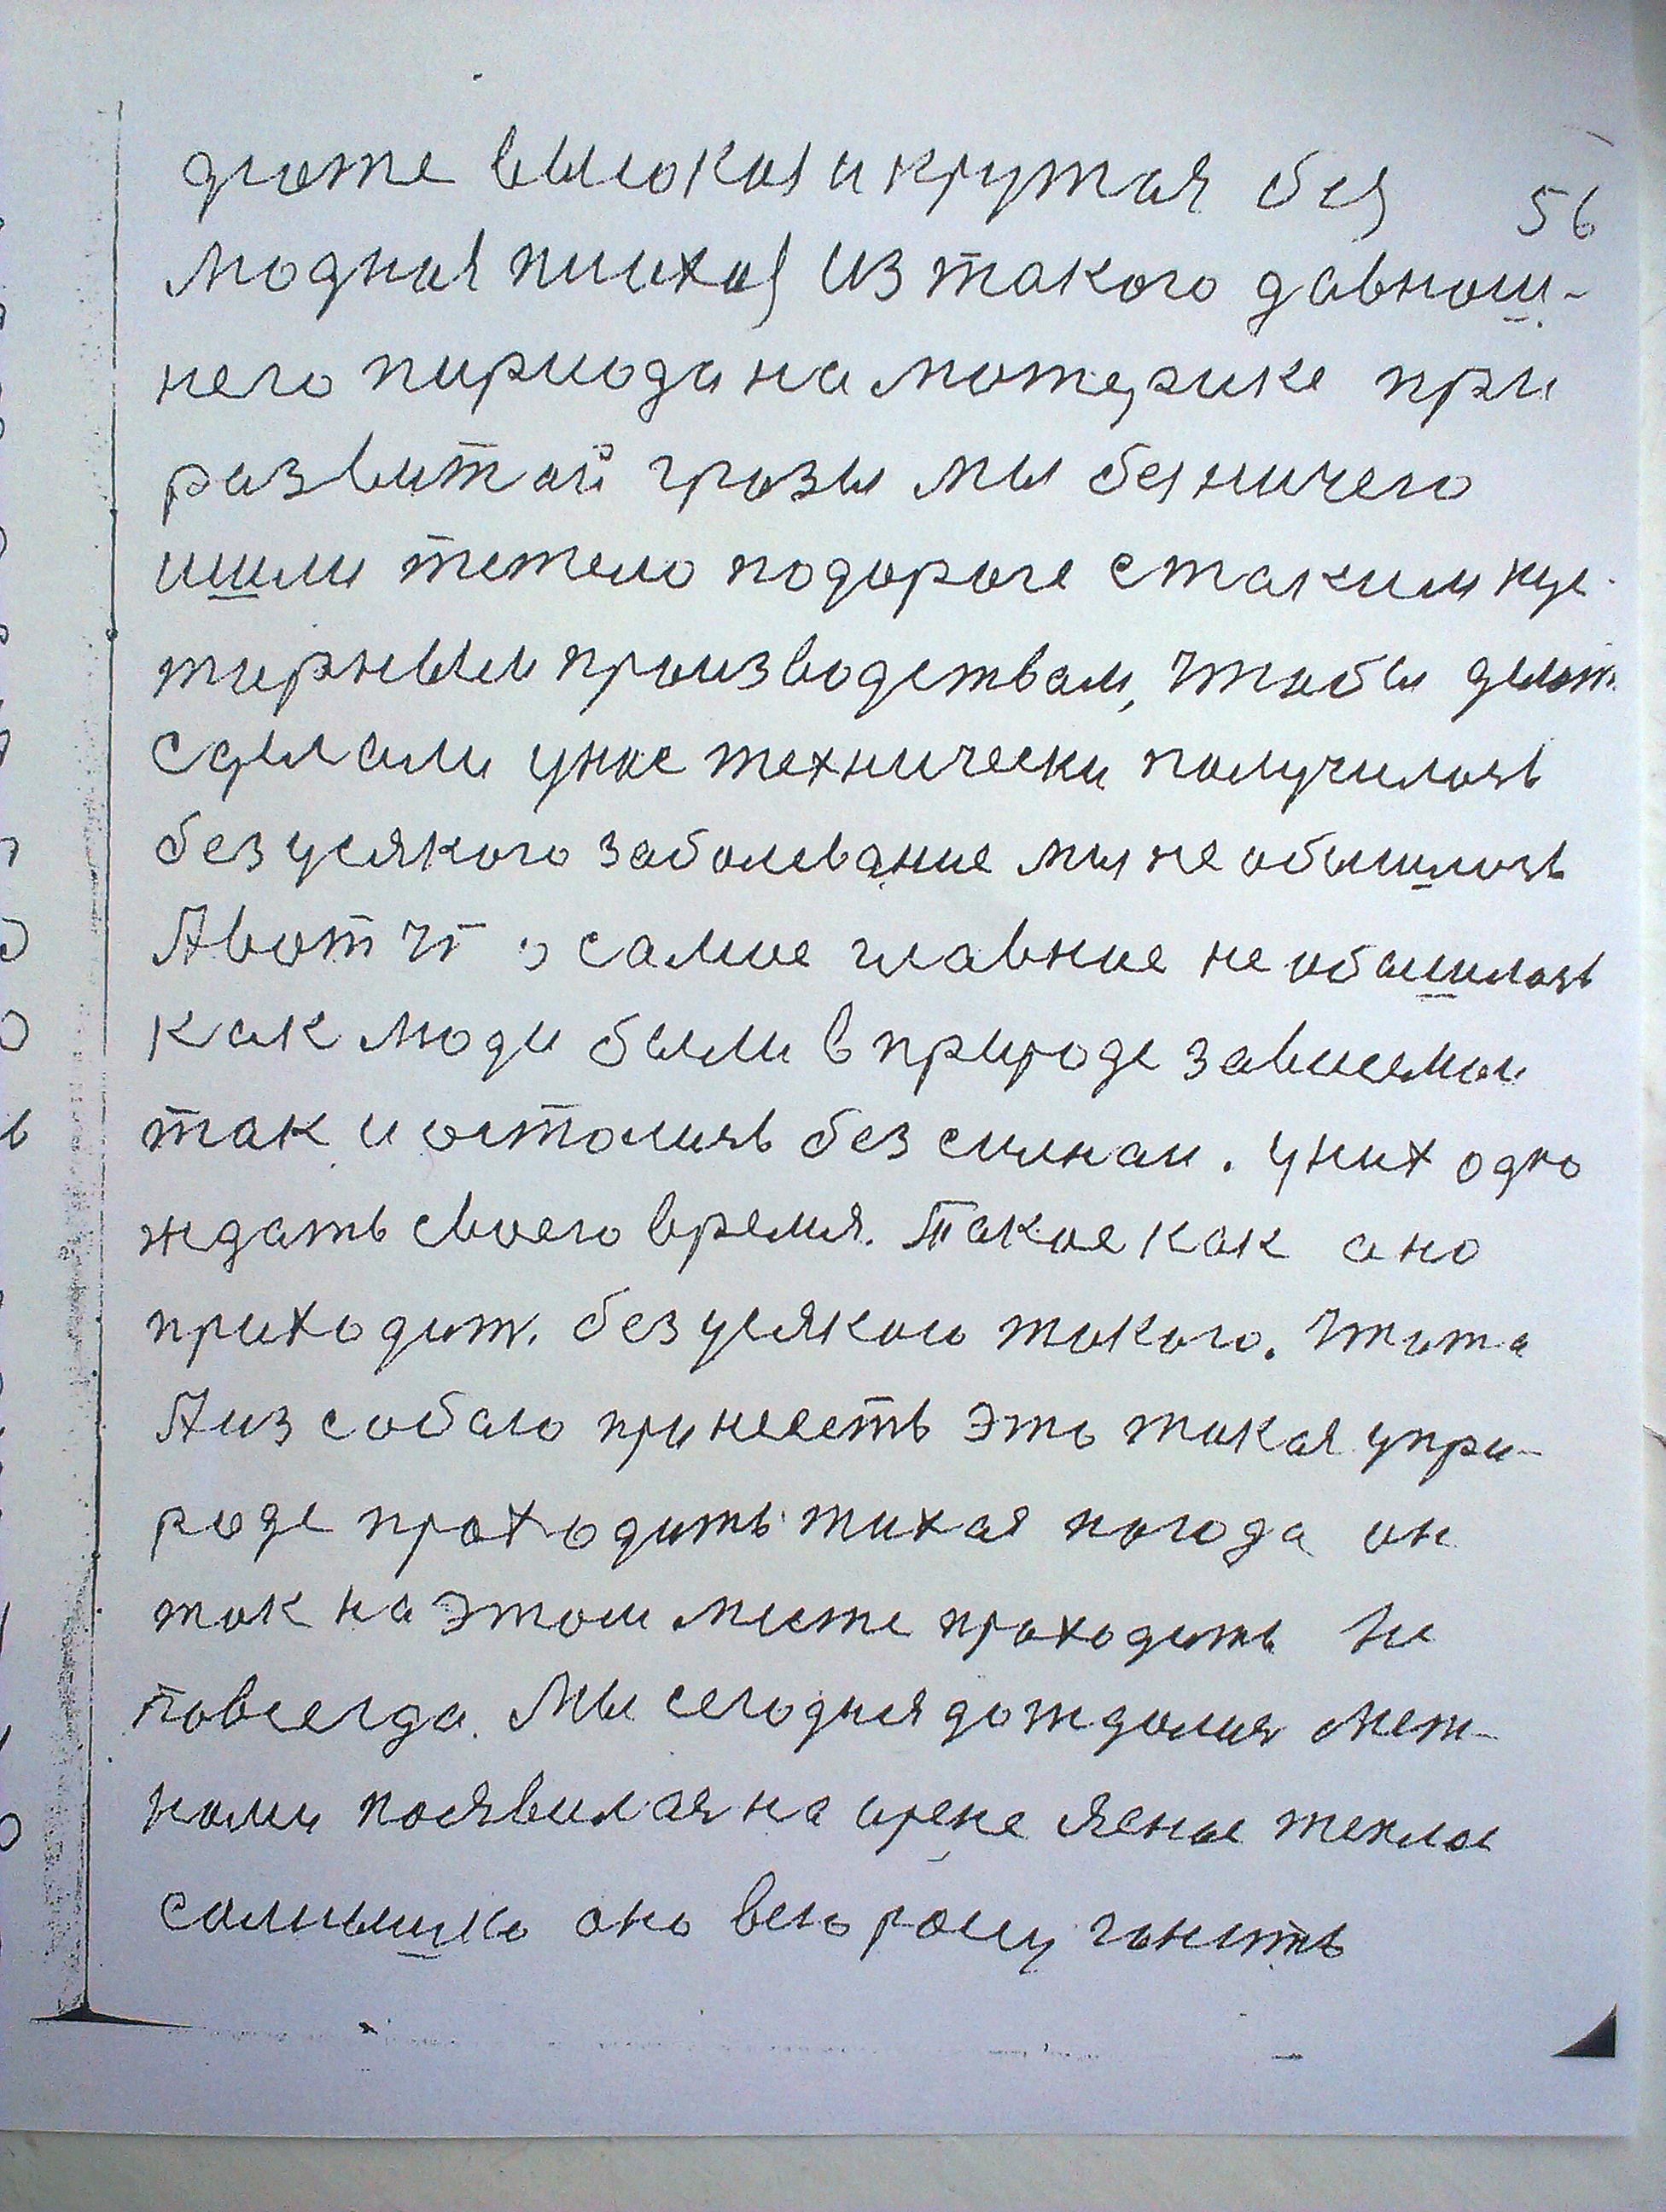 дюже высокая и крутая без 56
людная пихая из такого давнош-
него пириода на мотерике при
развитай грозы мы без ничего
ишли тежело подороге стаким кус
тирным производствам, чтобы
сделали унас технически получилось
без усякого заболевание мы не обышлось
Авот чт о самое главное не обашилось
как люди были в природе зависемаи
так и остолись без силнаи. уних одно
ждать своего время. Такое как ано
приходит. без усякого такого. Чтота
Аиз собаю принесеть это такая упри-
роде проходить тихая погода он
так на этом мисте проходить не
повсегда. Мы сегодня дождалися меж-
нами появилася на арене ясное теплое
солнышко оно всю росу гонить